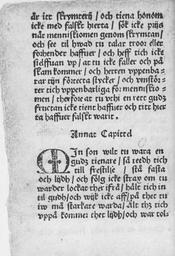 är itt skrymteri / och tiena honom
icke med falskt hierta / sök icke prijs
när menniskiomen genom skrymtan /
och see til hwad tu talar troor eller
offhender haffuer / och heff tich icke
sielffuan vp / at tu icke faller och på
skam kommer / och herren vppenba-
rar tijn förreta stycker / och
ter tich vppenbarliga för menniskio
men / therföre at tu vthi en rett gudz
fructan icke tient haffuer och titt hier
ta haffuer falskt warit.
Annat Capitel
MIn son wilt tu wara en
gudz tienare / så redh tich
til frestilse / stå fasta
och lijdh / och fölg icke
warder lockat ther ifrå / hålt tich in
til gudh / och wijk icke aff / på thet tu
iw må starkare warda / Alt thz tich
vppå kommer thet lijdh / och war tol-